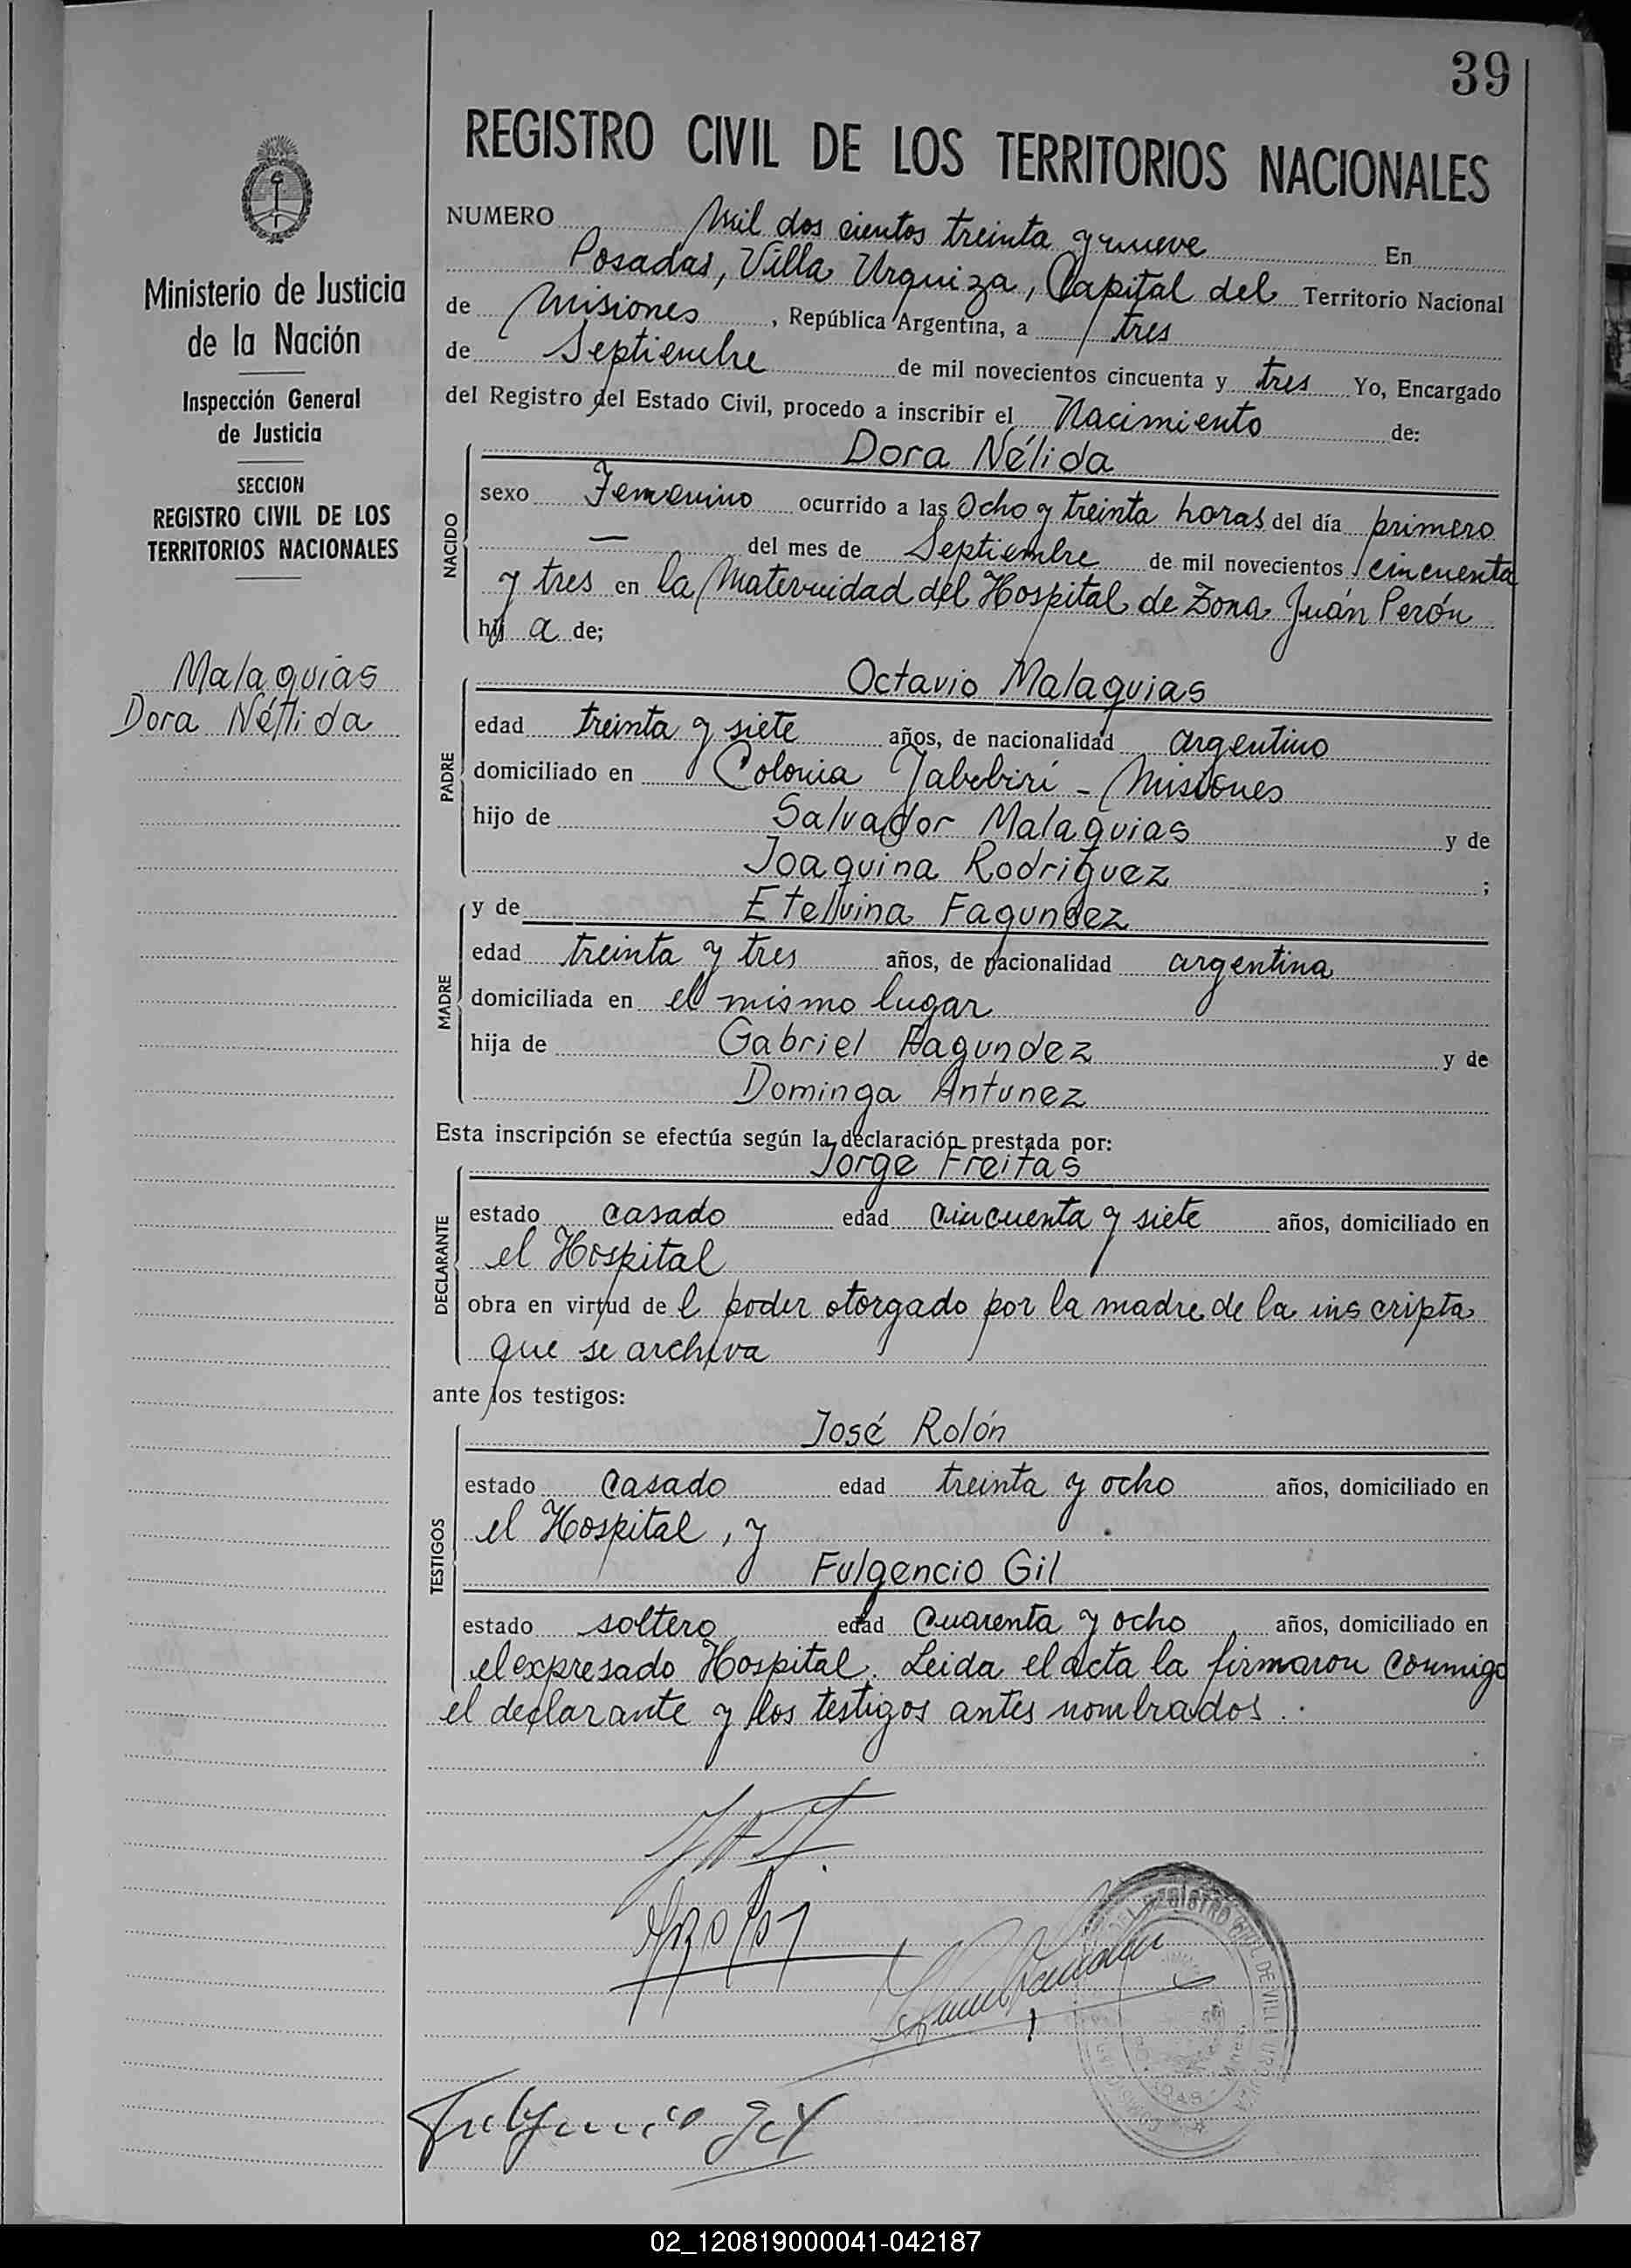 39
REGISTRO CIVIL DE LOS TERRITORIOS NACIONALES
Ministerio de Justicia
de la Nación
Inspección General
de Justicia
SECCION
REGISTRO CIVIL DE LOS
TERRITORIOS NACIONALES
Malaquias
Dora Nélida
NUMERO Mil dos cientos treinta y nueve En
Posadas, Villa Urquiza, Capital del Territorio Nacional
de Misiones, República Argentina, a tres
de Septiembre de mil novecientos cincuenta y tres Yo, Encargado
del Registro del Estado Civil, procedo a inscribir el Nacimiento de:
NACIDO
Dora Nélida
sexo Femenino ocurrido a las Ocho y treinta horas del día primero
— del mes de Septiembre de mil novecientos cincuenta
y tres en la Maternidad del Hospital de Zona Juán Perón
hij a de;
PADRE
Octavio Malaquias
edad treinta y siete años, de nacionalidad argentino
domiciliado en Colonia Yabebirí - Misiones
hijo de Salvador Malaquias y de
Joaquina Rodriguez ;
MADRE
y de Etelvina Fagundez
edad treinta y tres años, de nacionalidad argentina
domiciliada en el mismo lugar
hija de Gabriel Fagundez y de
Dominga Antunez
Esta inscripción se efectúa según la declaración prestada por:
DECLARANTE
Jorge Freitas
estado casado edad cincuenta y siete años, domiciliado en
el Hospital
obra en virtud de l poder otorgado por la madre de la inscripta
que se archiva
ante los testigos:
TESTIGOS
José Rolón
estado casado edad treinta y ocho años, domiciliado en
el Hospital, y
Fulgencio Gil
estado soltero edad cuarenta y ocho años, domiciliado en
el expresado Hospital. Leida el acta la firmaron conmigo
el declarante y los testigos antes nombrados.
Fulgencio Gil
02_120819000041-042187